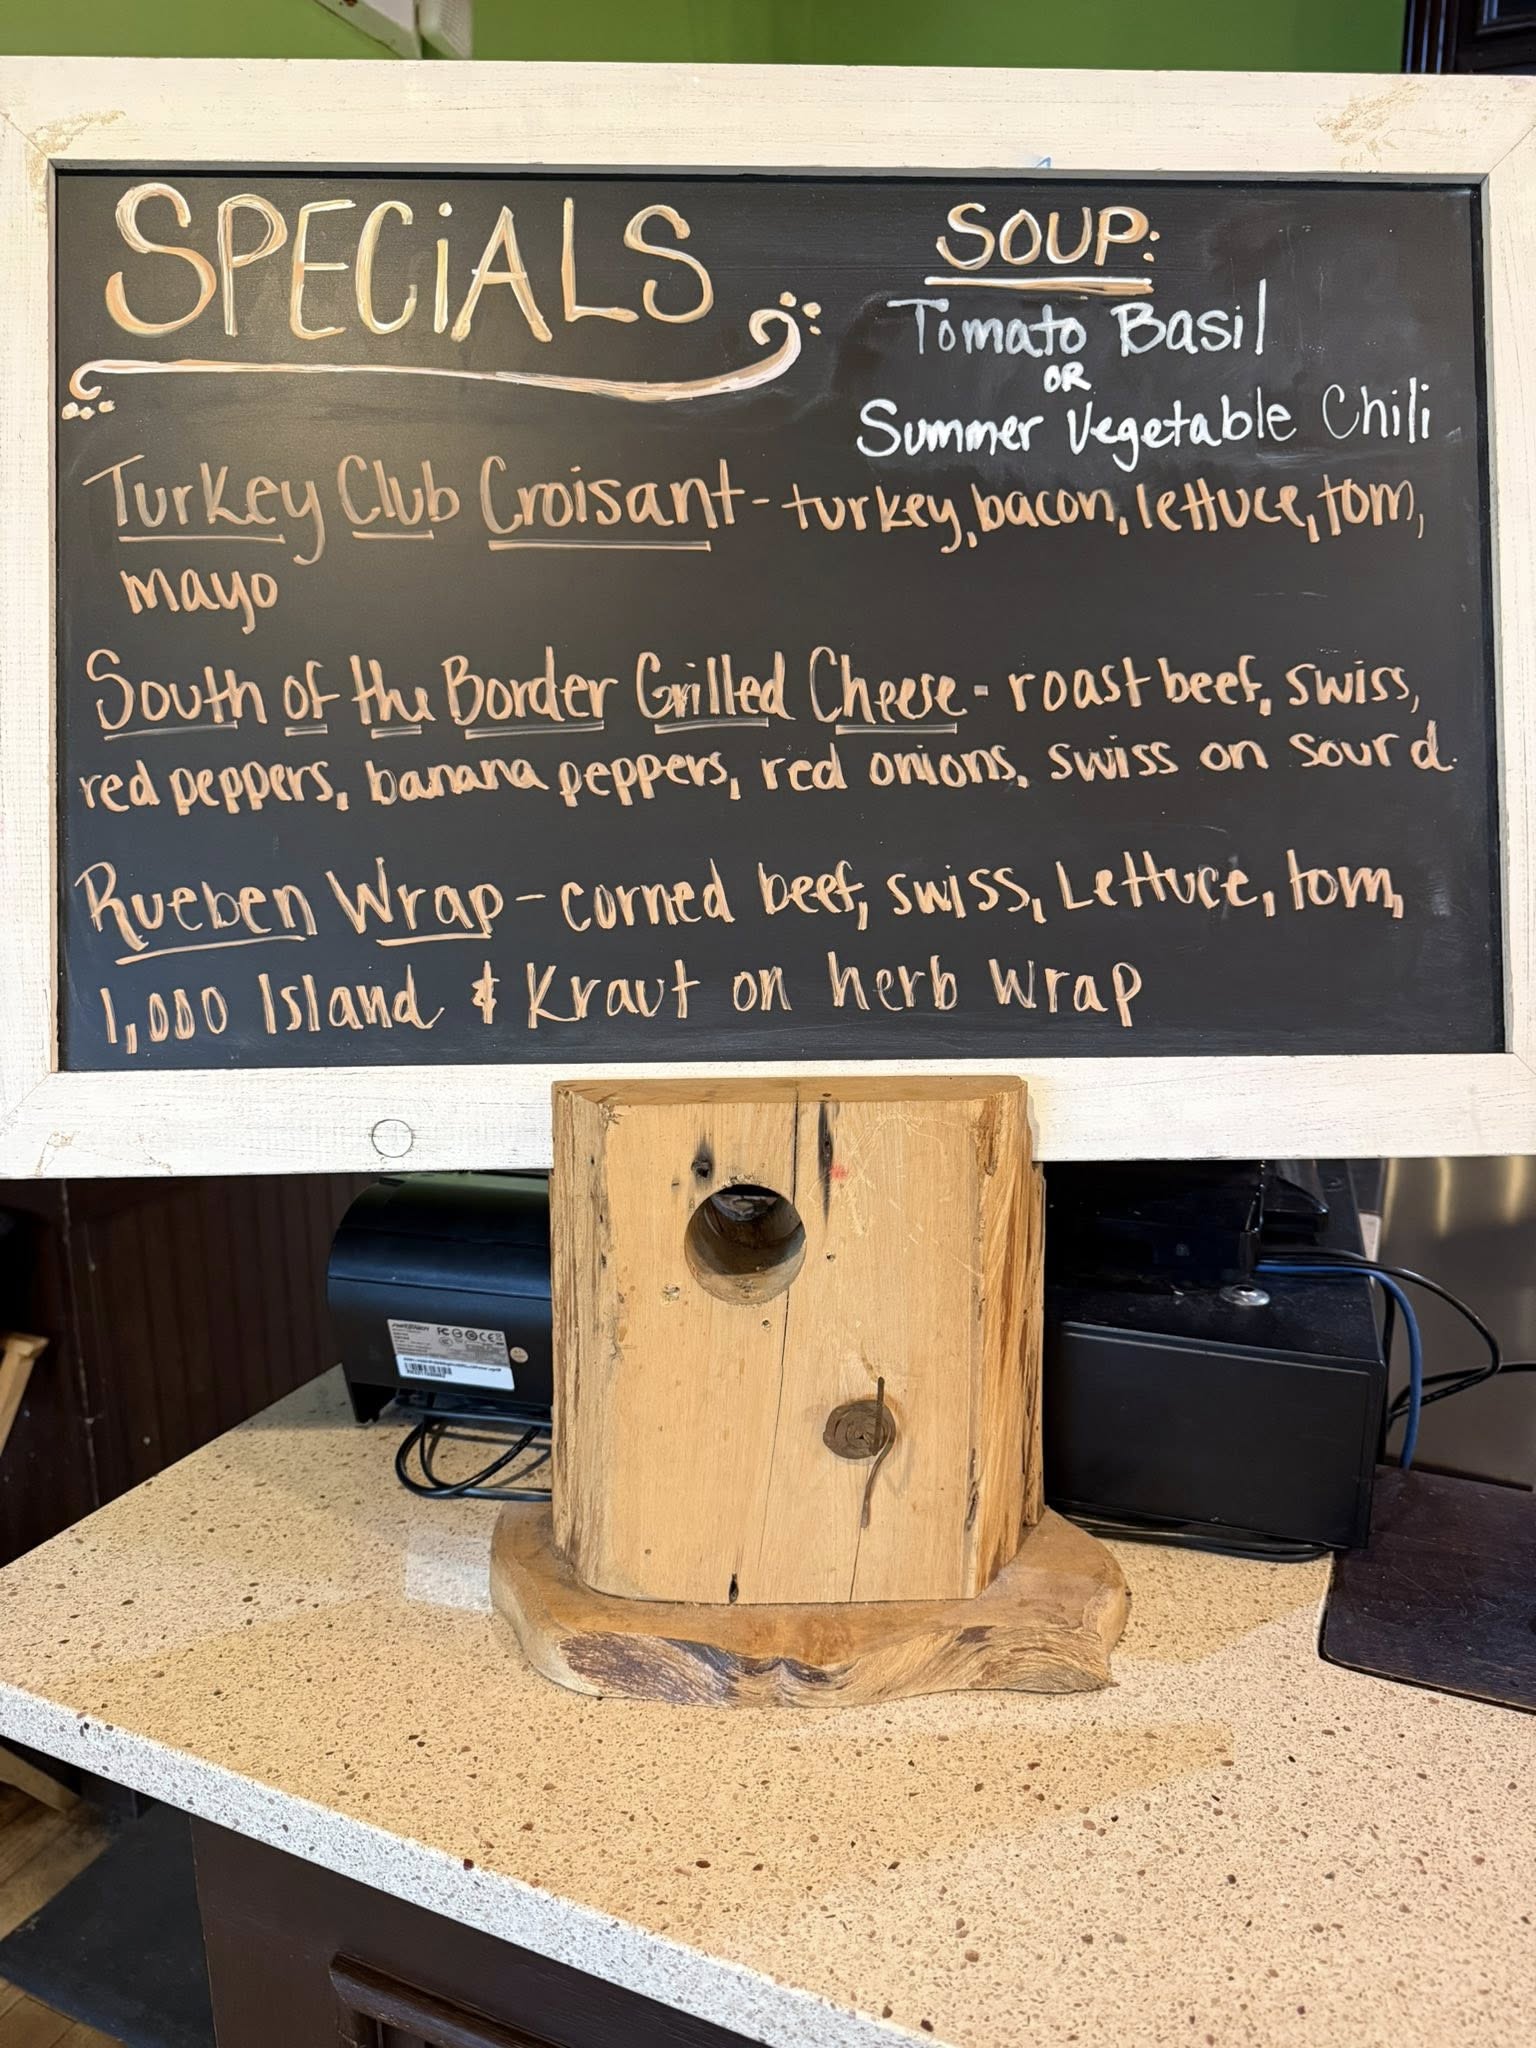 SPECiALS
SOUP:
Tomato Basil
OR
Summer Vegetable Chili
Turkey Club Croisant - turkey, bacon, lettuce, tom,
mayo
South of the Border Grilled Cheese - roast beef, swiss,
red peppers, banana peppers, red onions, swiss on sour d.
Rueben Wrap - corned beef, swiss, Lettuce, tom,
1,000 Island & Kraut on herb wrap